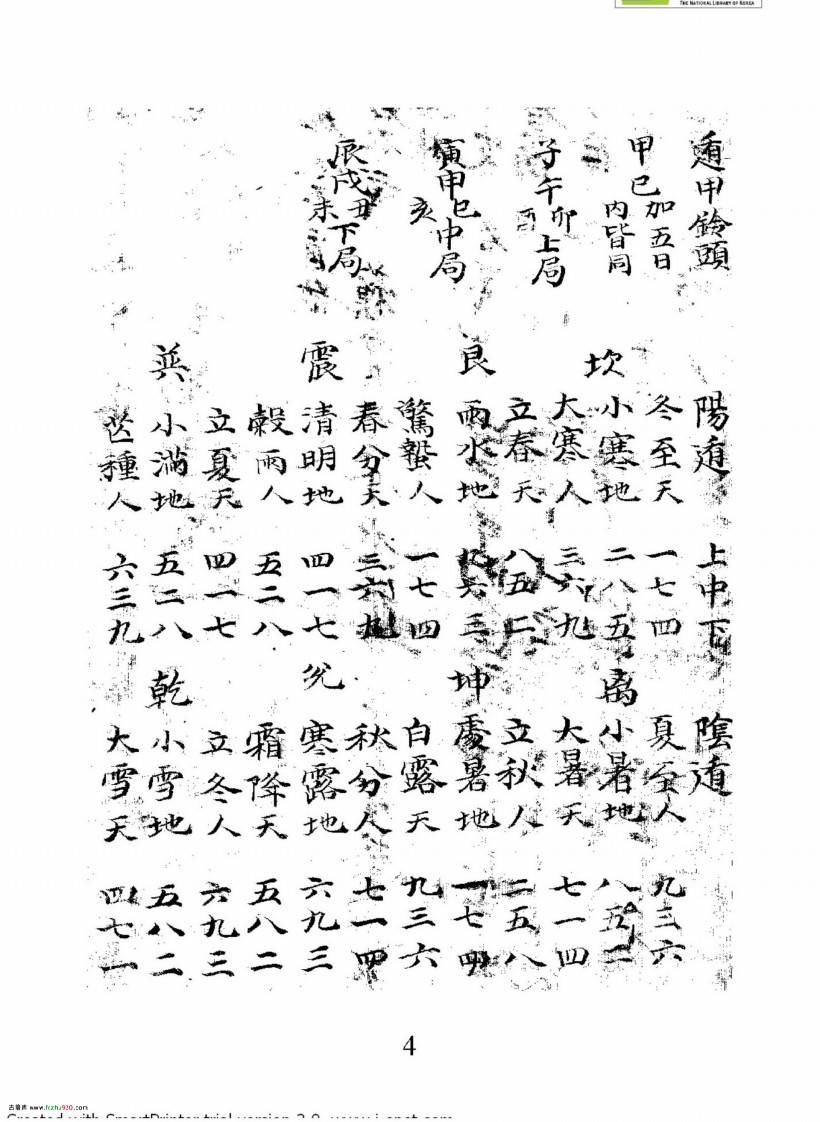 THE NATIONAL LIBRARY OF KOREA
遁甲鈴頭
甲己加五日內皆同
子午卯酉上局
寅申巳亥中局
辰戌丑未下局
陽遁 上中下
坎
冬至天 一七四
小寒地 二八五
大寒人 三六九
艮
立春天 八五二
雨水地 九六三
驚蟄人 一七四
震
春分天 三六九
清明地 四一七
穀雨人 五二八
巽
立夏天 四一七
小滿地 五二八
芒種人 六三九
陰遁
离
夏至人 九三六
小暑地 八五二
大暑天 七一四
坤
立秋人 二五八
處暑地 一七四
白露天 九三六
兌
秋分人 七一四
寒露地 六九三
霜降天 五八二
乾
立冬人 六九三
小雪地 五八二
大雪天 四七一
4
古籍库 www.fozhu920.com
Created with SmartPrinter trial version